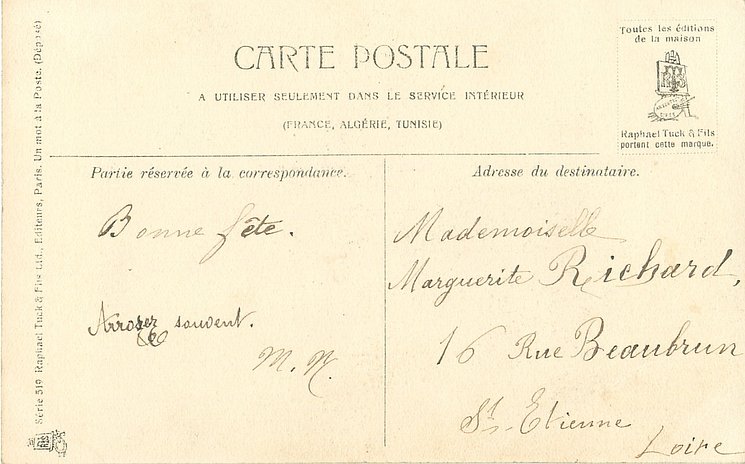 Toutes les éditions
de la maison
CARTE POSTALE
A UTILISER SEULEMENT DANS LE SERVICE INTÉRIEUR
(FRANCE, ALGÉRIE, TUNISIE)
Raphael Tuck & Fils
portent cette marque.
Partie réservée à la correspondance.
Bonne fête.
Arrosez souvent.
M. N.
Adresse du destinataire.
Mademoiselle
Marguerite Richard,
16 Rue Beaubrun
St-Etienne
Loire
Série 519 Raphael Tuck & Fils Ltd., Editeurs, Paris. Un mot à la Poste. (Déposé)